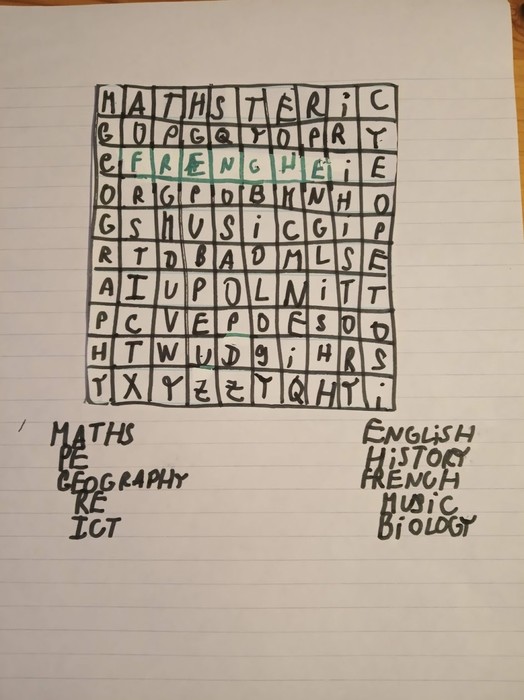 M A T H S T E R i C
G O P G Q Y O P R Y
E F R E N G H E i E
O R G P O B M N H O
G S M U S i C G i P
R T D B A O M L S E
A I U P O L N i T T
P C V E P O E S O O
H T W U D g i H R S
Y X Y Z Z Y Q H Y i
MATHS ENGLiSH
PE HiSTORY
GEOGRAPHY FRENCH
RE MUSiC
ICT BiOLOGY